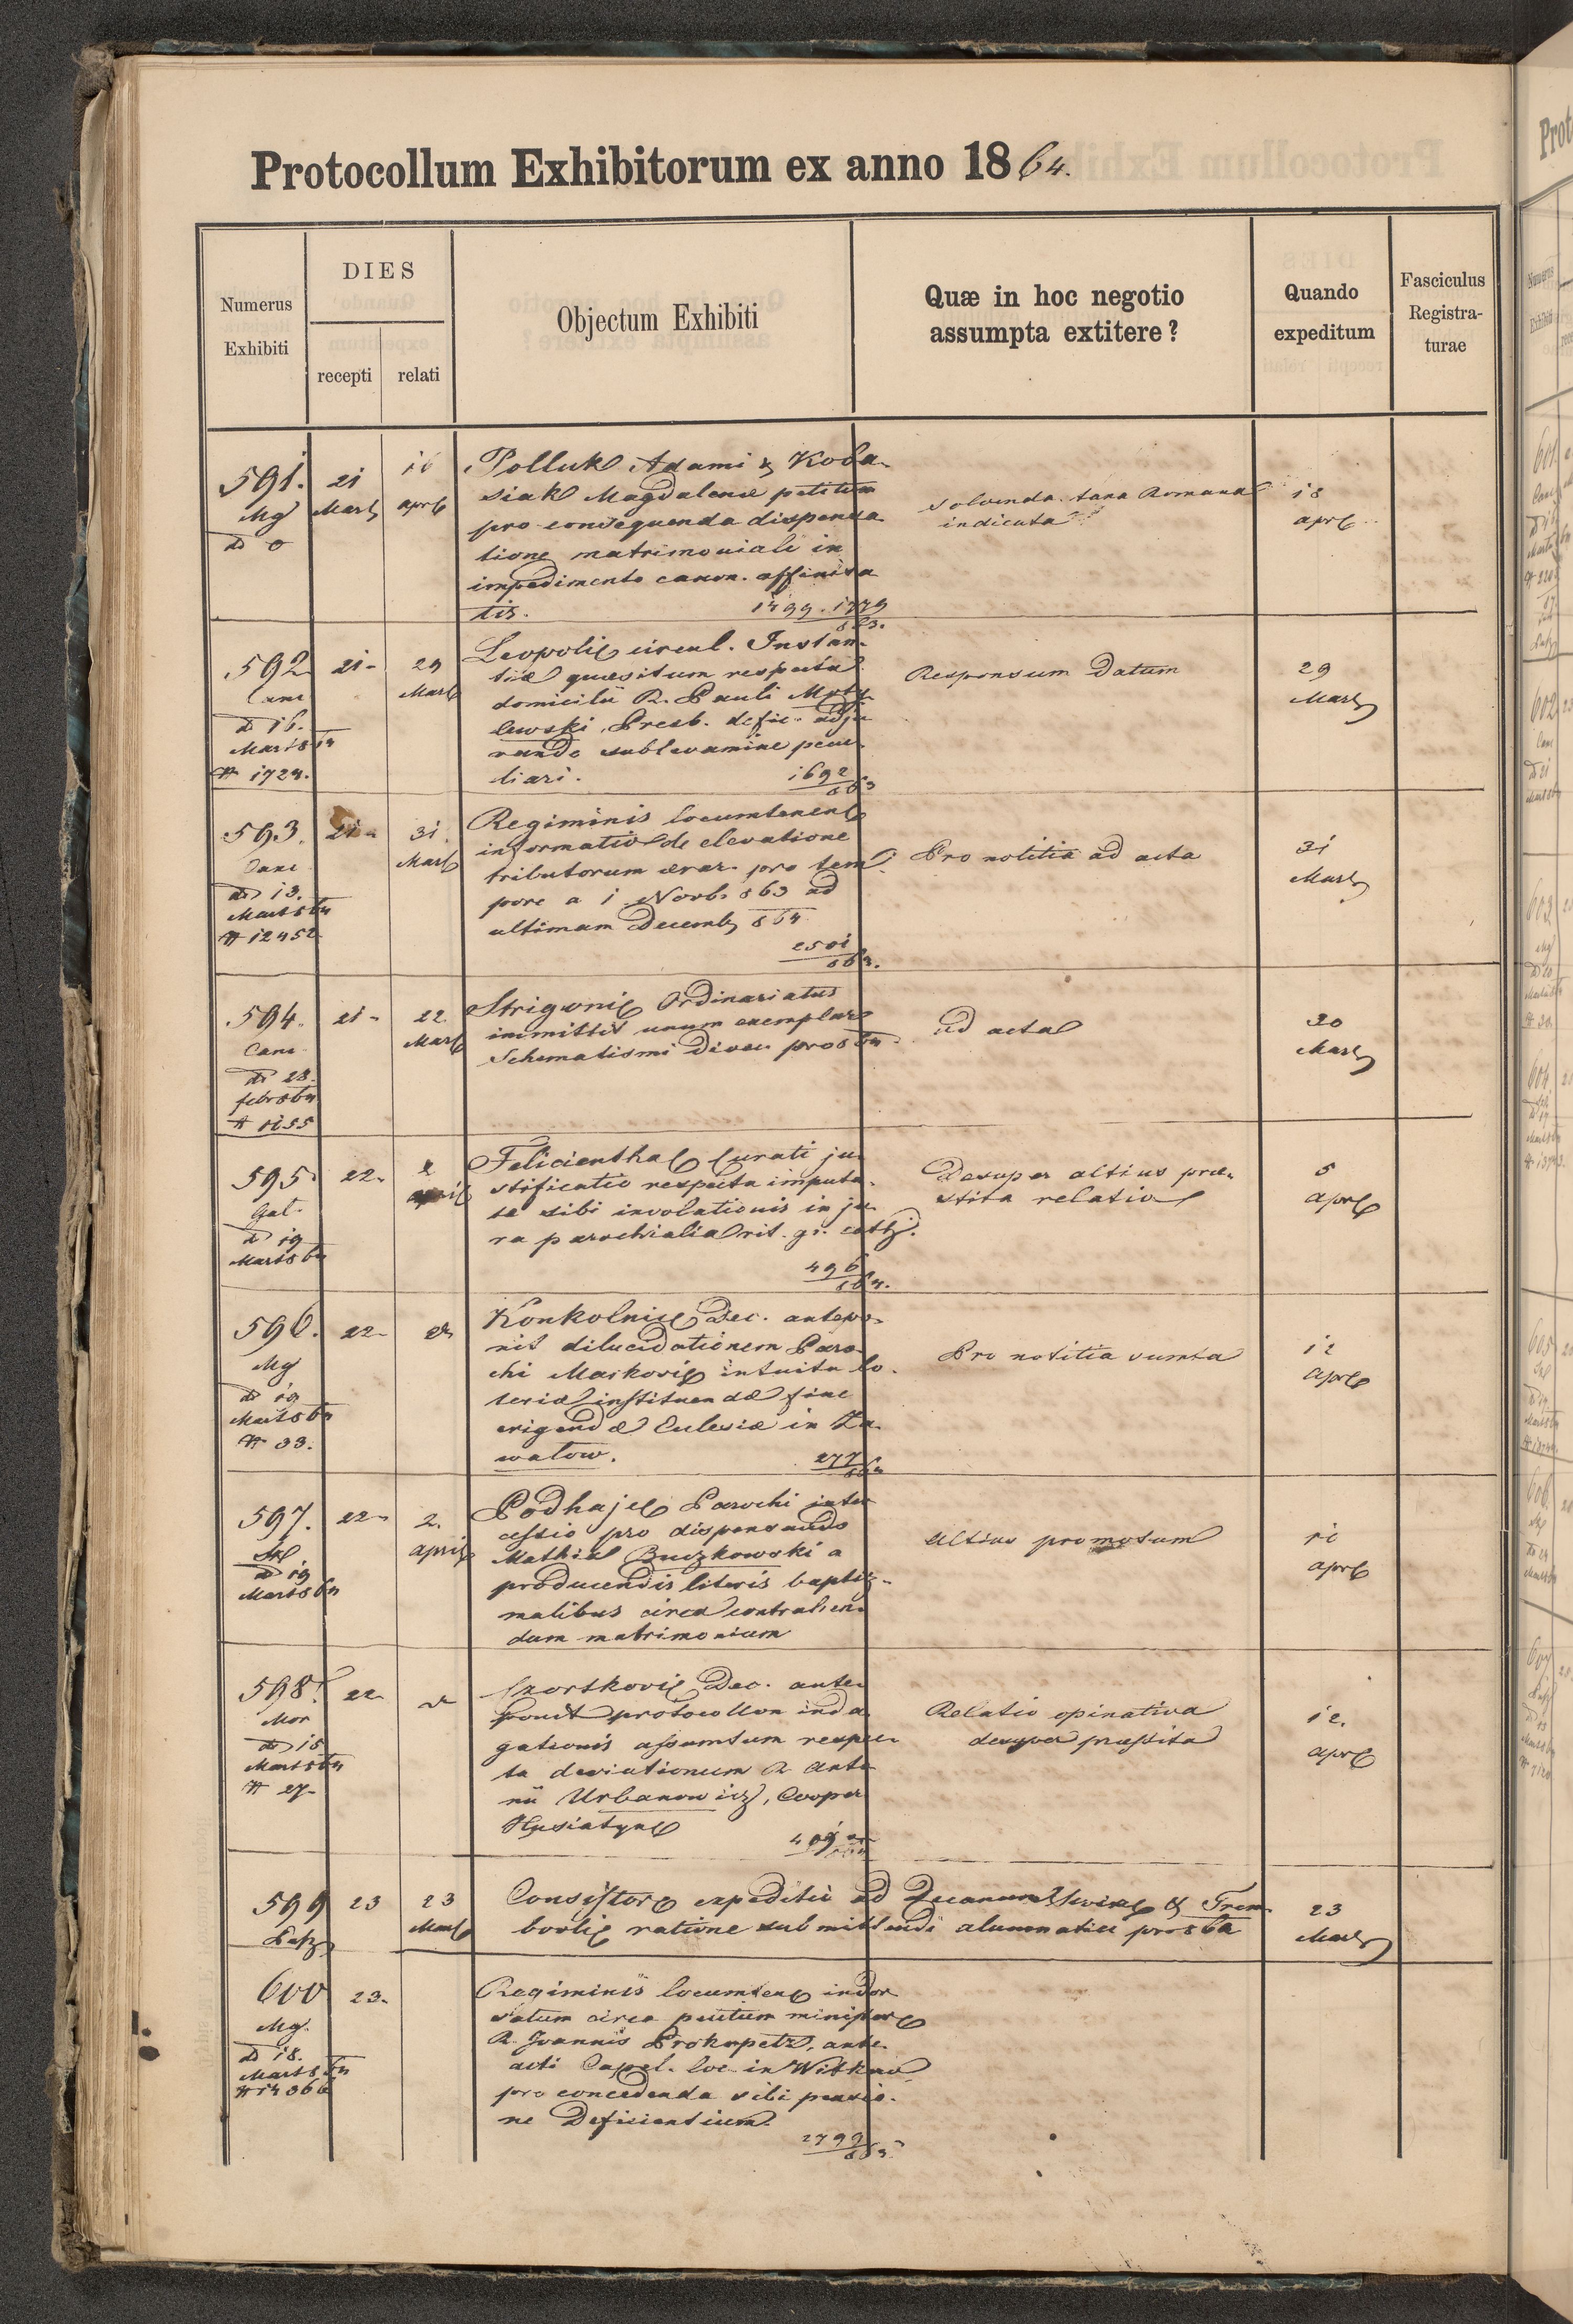 Protocollum Exhibitorum ex anno 1864.
Numerus Exhibiti
DIES
recepti
relati
Objectum Exhibiti
Quæ in hoc negotio
assumpta extitere?
Quando
expeditum
Fasciculus
Registra-
turae
591.
Mg
21
Mart
16
apr
Polluk Adami & Koba-
siak Magdalenæ petitum
pro consequenda dispensa
tione matrimoniali in
impedimento canon. affinita
tis.
1499. 1779
863.
solvenda taxa Romana
indicata
18
apr
592
Canc
d 16.
Mart 864
# 1724.
21-
29
Mart
Leopoli circul. Instan-
tiæ quæsitum respectu
domicilii R. Pauli
lewski, Presb. defic. adju
rando sublevamine pecu-
liari.
1692
863
Responsum Datum
29
Mart
593.
Canc
d 13.
Mart 864
# 12452
21-
31.
Mart
Regiminis locumtenent
informatio de elevatione
tributorum ærar. pro tem-
pore a 1 Novb. 863 ad
ultimam Decemb 864
2501
863.
Pro notitia ad acta
31
Mart
594.
Canc
d 28.
febr 864
# 1655
21-
22.
Mart
Strigoni Ordinariatus
immittit unum exemplare
Schematismi Dioec. pro 864
ad acta
30
Mart
595.
Gal.
d 19
Mart 864
22-
2
april
Felicienthal Curati ju-
stificatio respectu imputa-
tæ sibi involationis in ju-
ra parochialia rit. gr. cath.
496
864.
Desuper altius præ-
stita relatio
5
apr
596.
Mg
d 19
Mart 864
# 33.
22-
Konkolnic Dec. antepo-
nit dilucidationem Paro-
chi Markovi intuitu lo-
teriæ instituendæ fine
erigendæ Eclesiæ in Za-
watow.
277
864
Pro notitia sumta
12
apr
597.
d 19
Mart 864
22-
2.
april
Podhajc Parochi inter
cessio pro dispensando
Mathia Buczkowski a
producendis literis baptiz-
malibus circa contrahen-
dum matrimonium
altius promotum
apr
598.
Mor
d 15
Mart 864
# 27-
22-
Czortkovi Dec. ante-
ponit protocollon inda-
gationis assumtum respec-
tu deviationum R. Anto-
nii Urbanowicz, Cooper
Husiatyn
Relatio opinativa
desuper præstita
12.
apr
599
23
23
Mart
Consistor expeditio ad Decanum & Trem-
bovli ratione submittendi alumnatici pro 864
23
Mart
600
Mg.
d 18.
Mart 864
# 14366
23-
Regiminis locumten indor
satum circa petitum
R. Joannis Prokopetz, ante-
acti Capel. loc. in Witkow
pro concedenda sibi pensio-
ne Deficientium.
2799
863